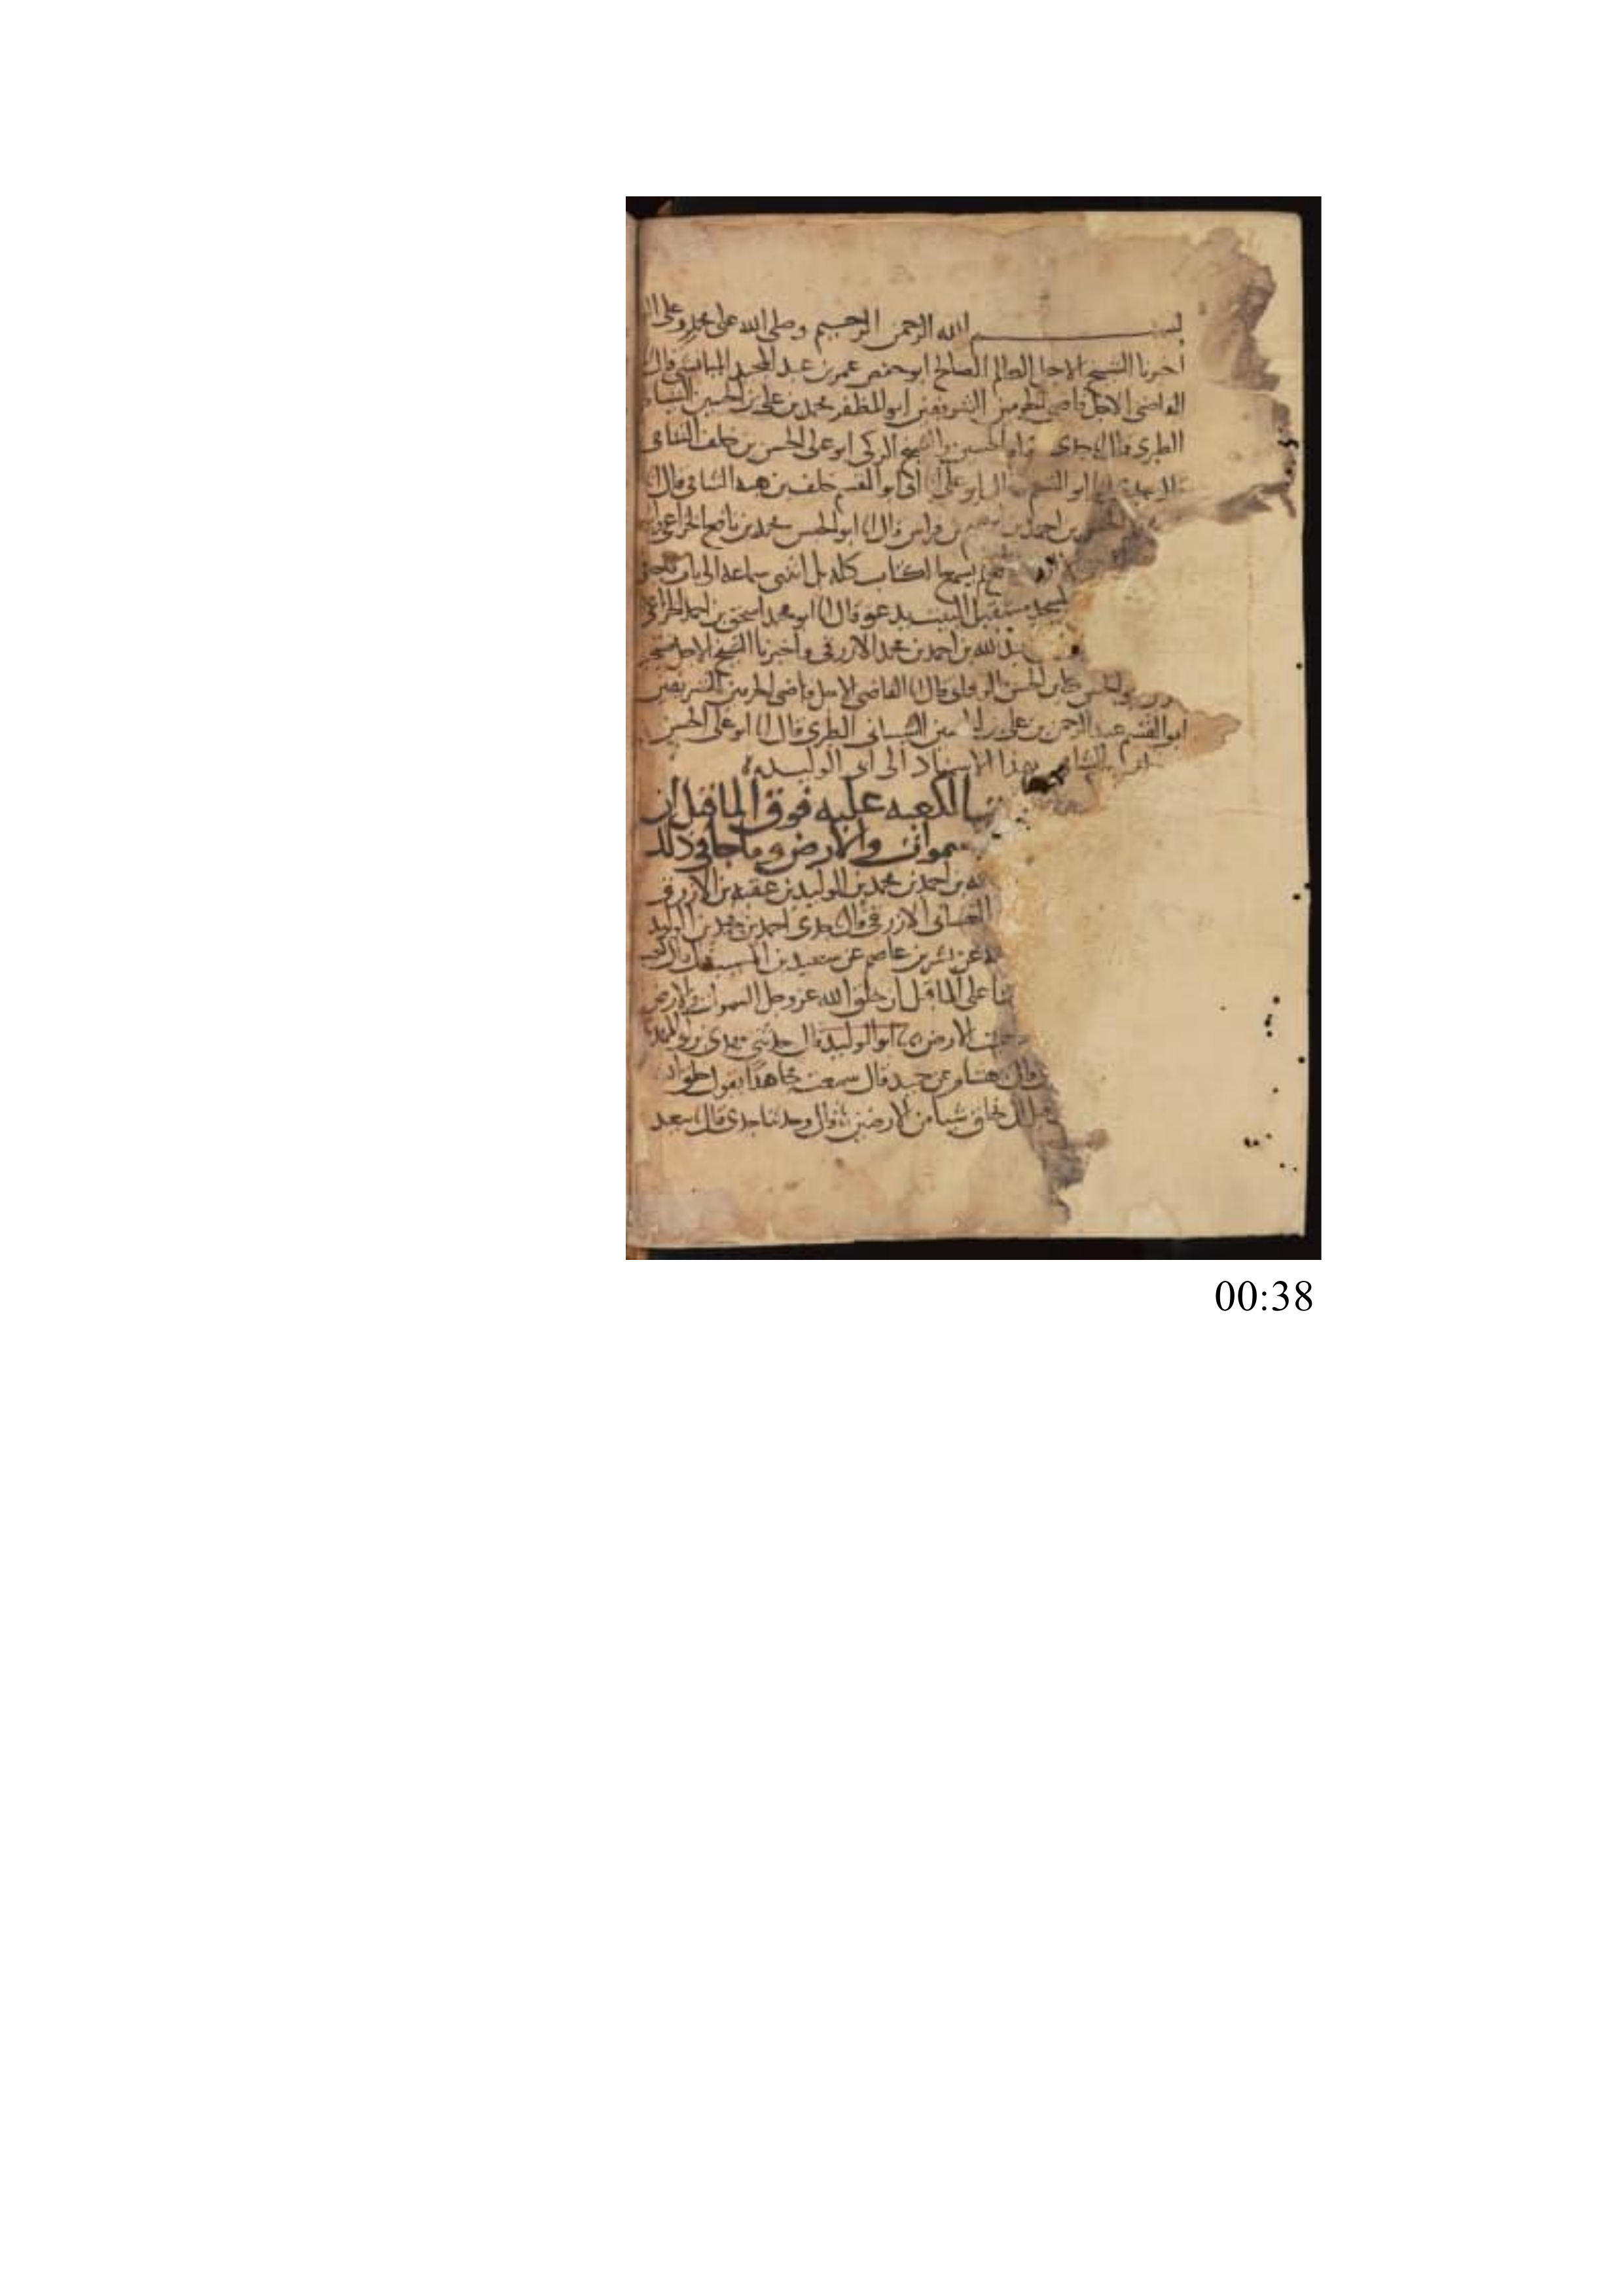 بسم الله الرحمن الرحيم وصلى الله على محمد وعلى ا
أخبرنا الشيخ الاجل العالم الصالح ابو حفص عمر بن عبد المجيد الميانشي قال
القاضي الاجل قاضي الحرمين الشريفين ابو المظفر محمد بن علي بن الحسين الشيبا
الطبري قال جدي الحسين والشيخ الزكي ابو علي الحسن بن خلف الشامي
ابو القسم قال ابو علي ابي ابو القسم خلف بن هبه الشامي قال
بن احمد بن بن فراس قال ابو الحسن محمد بن نافع الخزاعي
يسمع الكتاب كله بل انتهى سماعه الى باب
المسجد مستقبل البيت يدعو قال ابو محمد اسحق بن احمد الخزاعي
الله بن احمد بن محمد الازرقي واخبرنا الشيخ الاجل
بن الحسن قال القاضي الاجل قاضي الحرمين الشريفين
ابو القسم عبد الرحمن بن علي بن الشيباني الطبري قال ابو علي الحسن
الشامي بهذا الاسناد الى ابي الوليد
الكعبه عليه فوق الما قبل ان
سموات والارض وما جا في ذلك
بن احمد بن محمد بن الوليد بن عقبه بن الازرق
الغساني الازرقي قال جدي احمد بن محمد بن الوليد
عن بشر بن عاصم عن سعيد بن المسيب قال قال كعب
على الما قبل ان خلق الله عز وجل السموات والارض
الارض ابو الوليد قال حدثني مهدي بن ابو المهدي
قال هشام عن حميد قال سمعت مجاهدا يقول
يخلق شيا من الارضين قال وحدثنا جدي قال سعيد
00:38